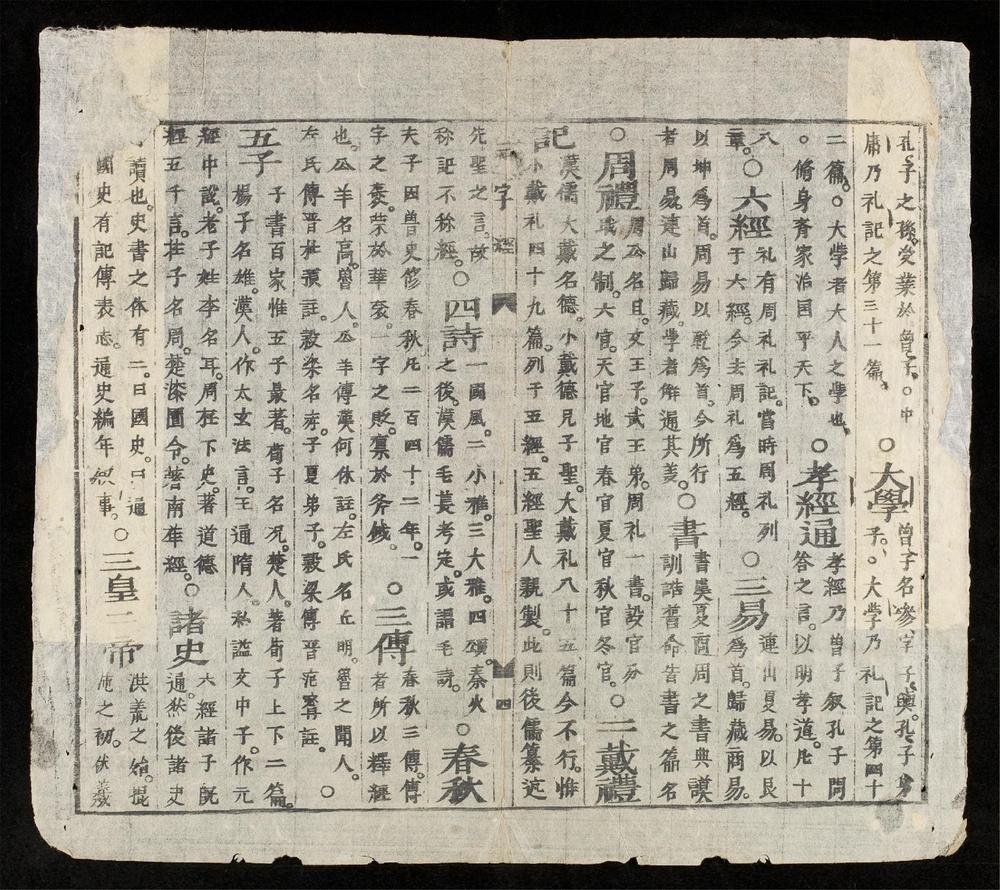 孔子之孫。受業於曾子。○中
庸乃礼記之第三十一篇。
○大學
曾子名參字子輿。孔子弟
子。○大学乃礼記之第四十
二篇。○大學者大人之學也。
○脩身齊家治国平天下。
○孝經通
孝經乃曾子叙孔子問
答之言。以明孝道。凡十
八
章。
○六經
礼有周礼礼記。當時周礼列
于六經。今去周礼爲五經。
○三易
連山夏易。以艮
爲首。歸藏商易。
以坤爲首。周易以乾爲首。今所行
者周易。連山歸藏。學者觧通其義。
○書
書虞夏商周之書典謨
訓誥誓命告書之篇名
○周禮
周公名旦。文王子。武王弟。周礼一書。設官分
之制。六官。天官地官春官夏官秋官冬官。
○二戴禮
記
漢儒大戴名德。小戴德兄子聖。大戴礼八十五篇今不行。惟
小戴礼四十九篇。列于五經。五經聖人親製。此則後儒纂述
三字經 四
先聖之言。故
称記不称經。
○四詩
一國風。二小雅。三大雅。四頌。秦火
之後。漢儒毛萇考定。或謂毛詩。
○春秋
夫子因魯史修春秋。凡二百四十二年。
字之褒。荣於華衮。一字之貶。稟於斧鉞。
○三傳
春秋三傳。傳
者所以釋經
也。公羊名高。魯人。公羊傳漢何休註。左氏名丘明。魯之聞人。
左氏傳晋杜預註。穀梁名赤。子夏弟子。穀梁傳晋范寗註。
○
五子
子書百家惟五子最著。荀子名况。楚人。著荀子上下二篇。
楊子名雄。漢人。作太玄法言。王通隋人。私謚文中子。作元
經中説。老子姓李名耳。周柱下史。著道德
經五千言。荘子名周。楚漆園令。著南華經。
○諸史
六經諸子既
通。然後諸史
讀也。史書之体有二。曰國史。曰通
國史有記傳表志。通史編年叙事。
○三皇二帝
洪荒之始。混
沌之初。伏羲